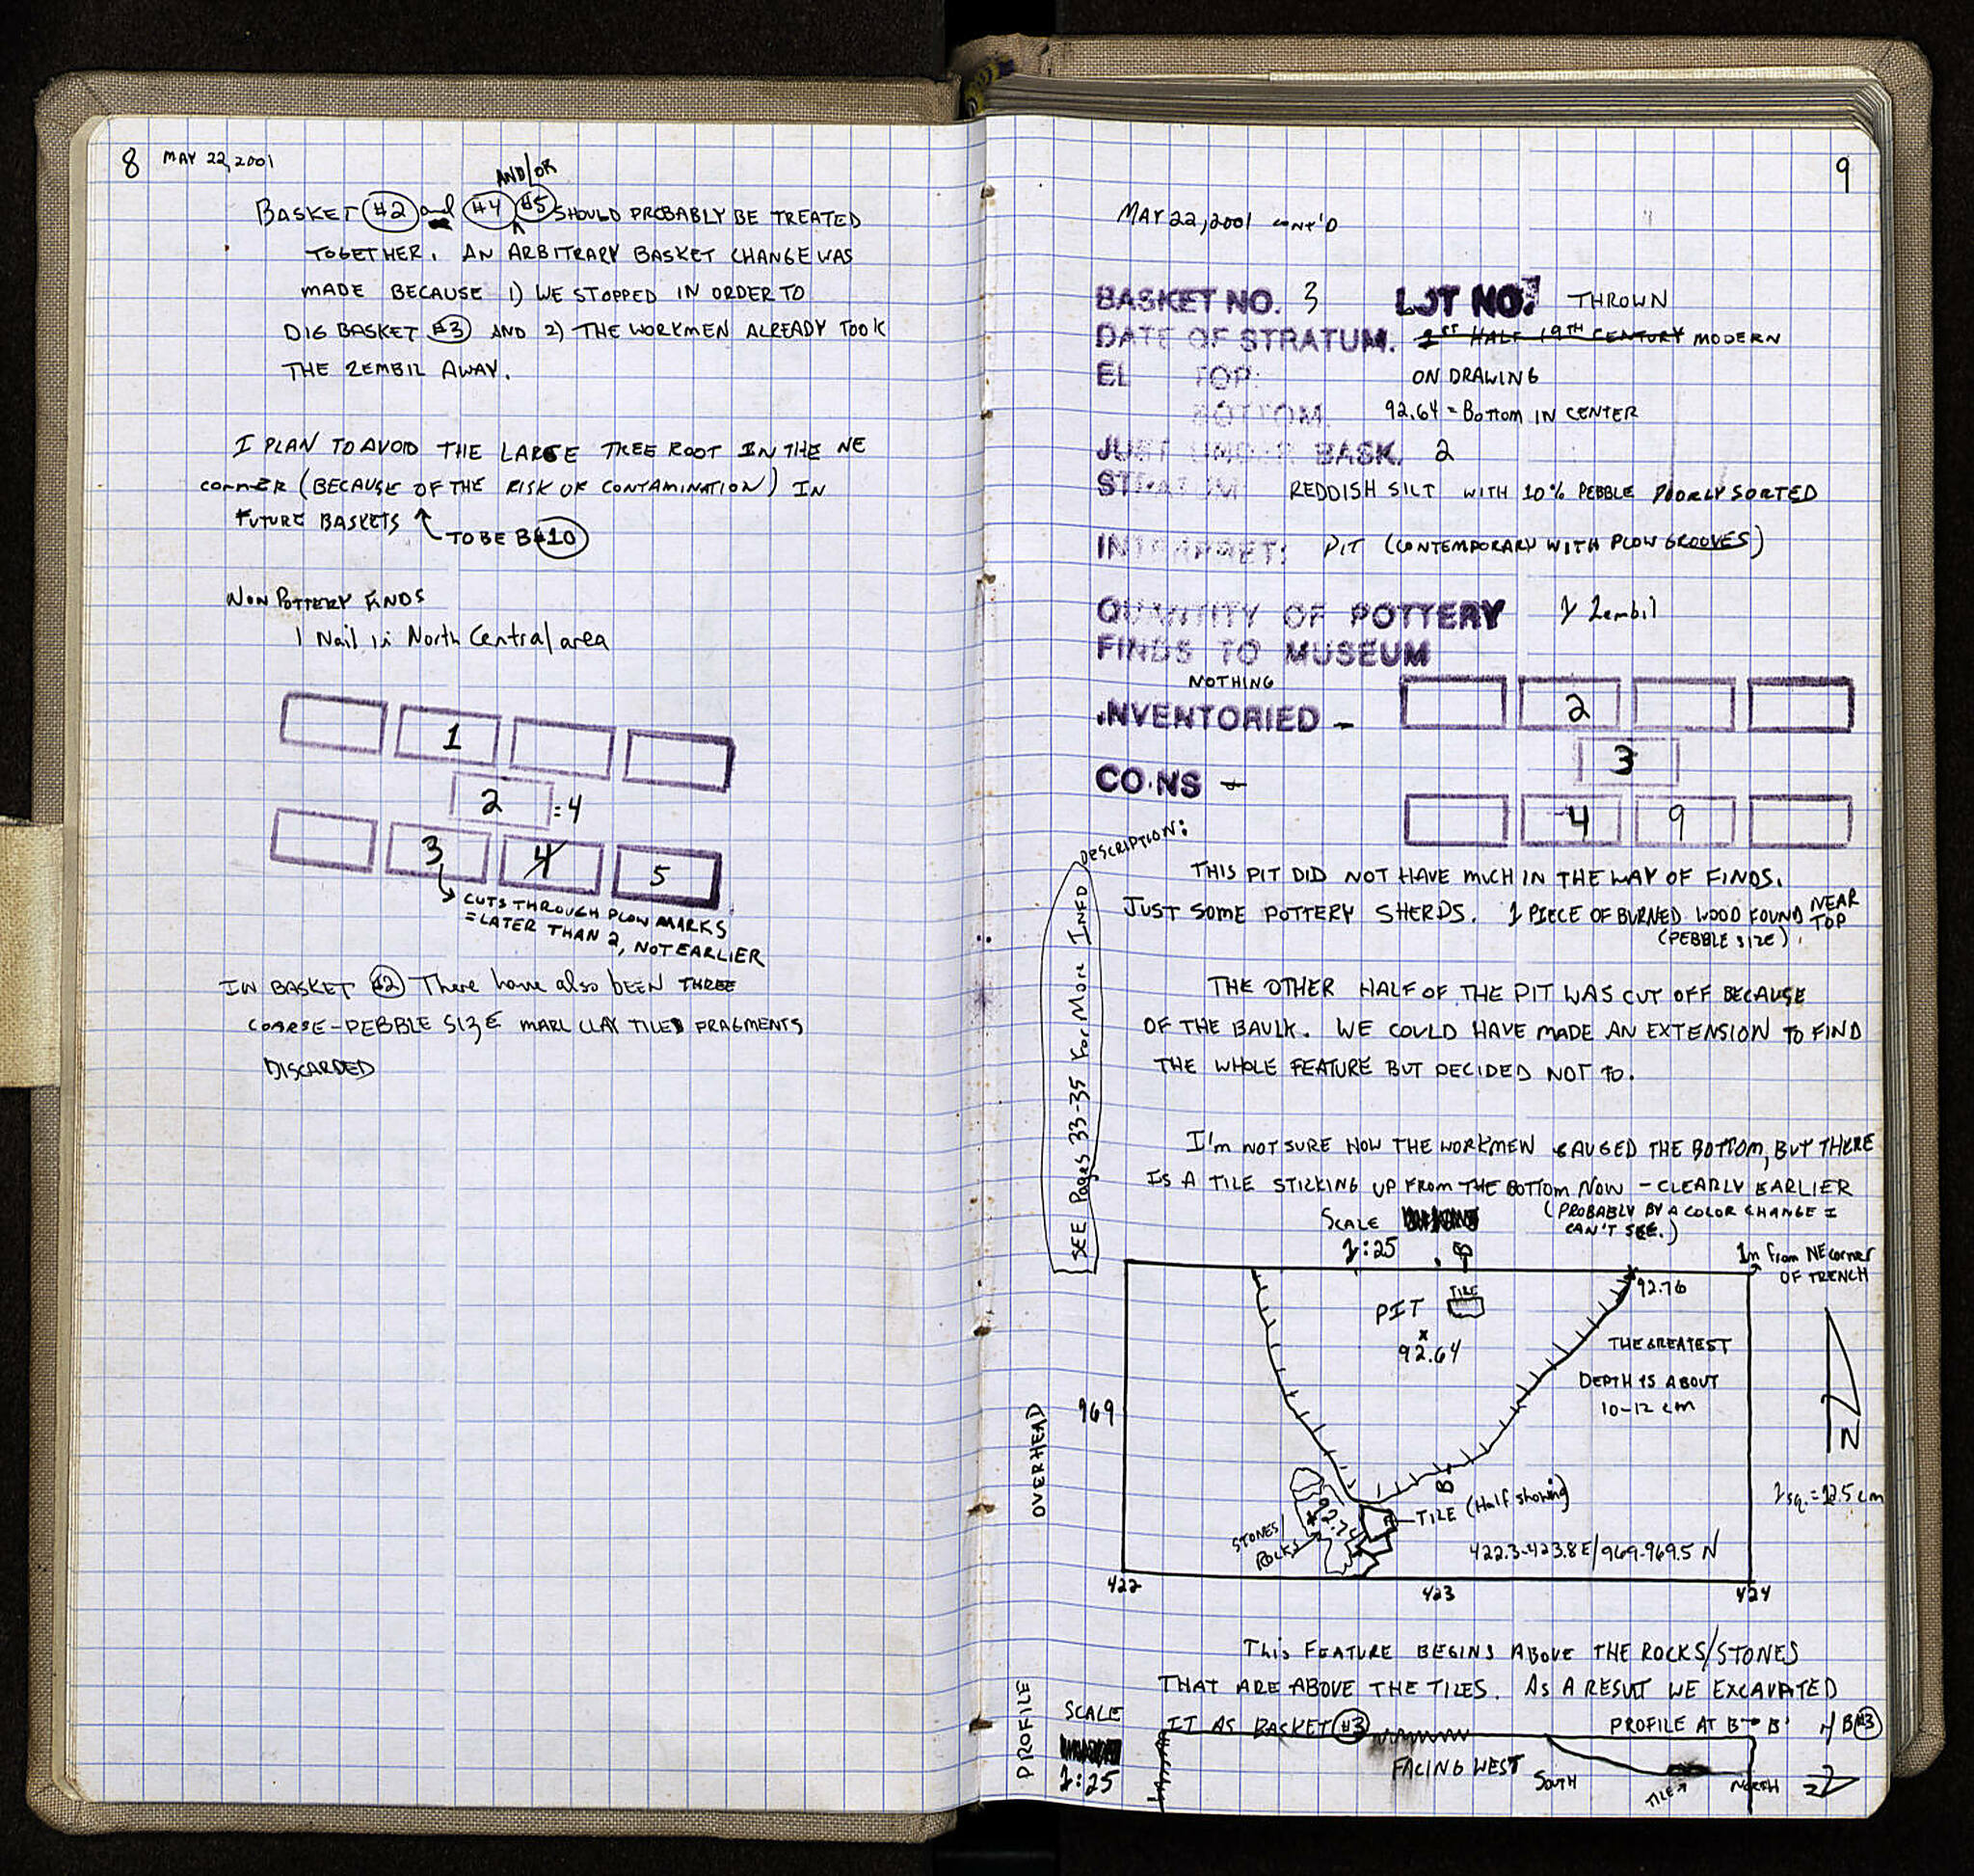 8 MAY 22, 2001
AND/OR
BASKET #2 and #4 #5 SHOULD PROBABLY BE TREATED
TOGETHER. AN ARBITRARY BASKET CHANGE WAS
MADE BECAUSE 1) WE STOPPED IN ORDER TO
DIG BASKET #3 AND 2) THE WORKMEN ALREADY TOOK
THE ZEMBIL AWAY.
I PLAN TO AVOID THE LARGE TREE ROOT IN THE NE
CORNER (BECAUSE OF THE RISK OF CONTAMINATION) IN
FUTURE BASKETS
TO BE B#10
NON POTTERY FINDS
1 Nail in North Central area
1
2 = 4
3 4 5
CUTS THROUGH PLOW MARKS
= LATER THAN 2, NOT EARLIER
IN BASKET #2 There have also been THREE
COARSE-PEBBLE SIZE MARL CLAY TILE FRAGMENTS
DISCARDED
9
MAY 22, 2001 CONT'D
BASKET NO. 3 LOT NO. THROWN
DATE OF STRATUM. 1ST HALF 19TH CENTURY MODERN
EL TOP: ON DRAWING
BOTTOM. 92.64 = BOTTOM IN CENTER
JUST UNDER BASK. 2
STRATUM REDDISH SILT WITH 10% PEBBLE POORLY SORTED
INTERPRET: PIT (CONTEMPORARY WITH PLOW GROOVES)
QUANTITY OF POTTERY Zembil
FINDS TO MUSEUM
NOTHING
INVENTORIED -
COINS -
2
3
4 9
DESCRIPTION:
THIS PIT DID NOT HAVE MUCH IN THE WAY OF FINDS.
JUST SOME POTTERY SHERDS. 1 PIECE OF BURNED WOOD FOUND NEAR TOP
(PEBBLE SIZE).
THE OTHER HALF OF THE PIT WAS CUT OFF BECAUSE
OF THE BAULK. WE COULD HAVE MADE AN EXTENSION TO FIND
THE WHOLE FEATURE BUT DECIDED NOT TO.
SEE Pages 33-35 For More INFO
I'M NOT SURE HOW THE WORKMEN GAUGED THE BOTTOM, BUT THERE
IS A TILE STICKING UP FROM THE BOTTOM NOW - CLEARLY EARLIER
(PROBABLY BY A COLOR CHANGE I
CAN'T SEE.)
SCALE
1:25
1m from NE corner
OF TRENCH
92.76
PIT
TILE
x
92.64
THE GREATEST
DEPTH IS ABOUT
10-12 cm
969
OVERHEAD
N
B
TILE (Half showing)
STONES/
ROCKS
1 sq. = 12.5 cm
422.3-423.8E/969-969.5 N
422
423
424
THIS FEATURE BEGINS ABOVE THE ROCKS/STONES
THAT ARE ABOVE THE TILES. AS A RESULT WE EXCAVATED
IT AS BASKET #3
PROFILE AT B-B' B#3
PROFILE
SCALE
1:25
FACING WEST
SOUTH
TILE
NORTH